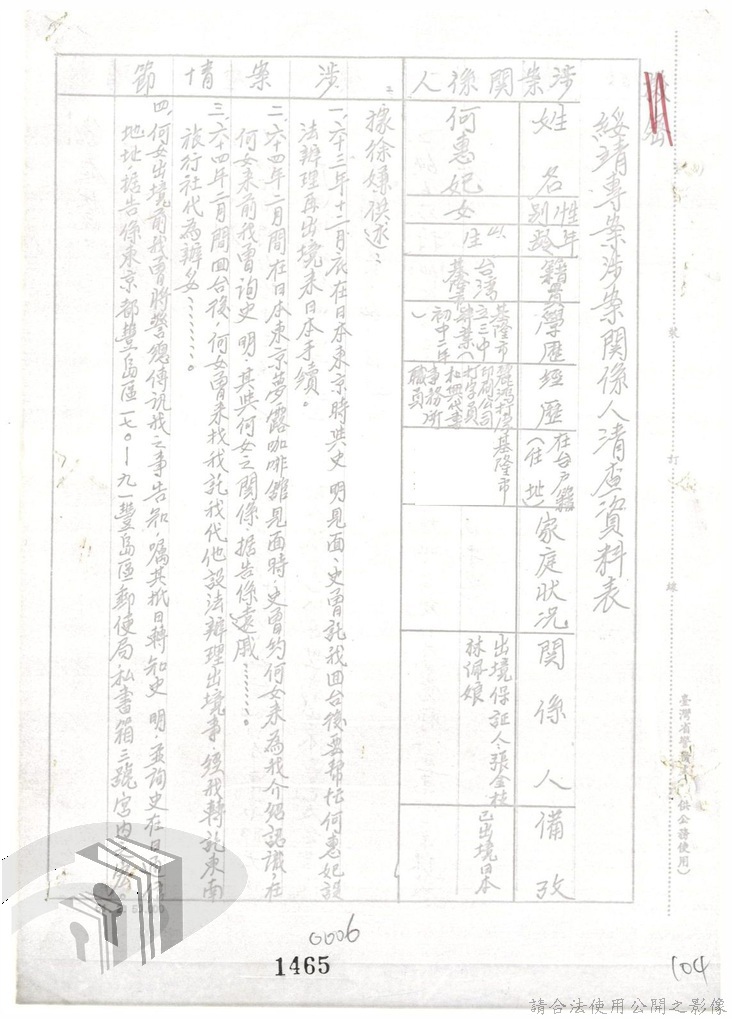 綏靖專案涉案關係人清查資料表
涉案關係人
姓名
性別
年齡
籍貫
學歷
經歷
在台戶籍(住址)
家庭狀況
關係人
備攷
何惠妃
女
生
台灣基隆市
基隆市立三中畢業(初中二年)
印刷公司打字員
事務所職員
基隆市
出境保証人:張金枝
林佩娘
已出境日本
涉案情節
據徐嫌供述:
一、六十三年十二月底在日本東京時與史 明見面、史曾託我回台後要幫忙何惠妃設
法辦理再出境來日本手續。
二、六十四年一月間在日本東京夢露咖啡館見面時,史曾約何女來為我介紹認識,在
何女來前我曾詢史 明,其與何女之關係,据告係遠戚……。
三、六十四年二月間回台後,何女曾來找我託我代他設法辦理出境事,經我轉託東南
旅行社代為辦妥……。
四、何女出境前我曾將警總傳訊我之事告知,囑其抵日轉知史 明,並詢史在日通訊
地址,据告係東京都豐島區一七〇-九一豐島區郵便局私書箱三號宮內
臺灣省警
供公務使用)
裝
打
線
0006
1465
104
請合法使用公開之影像